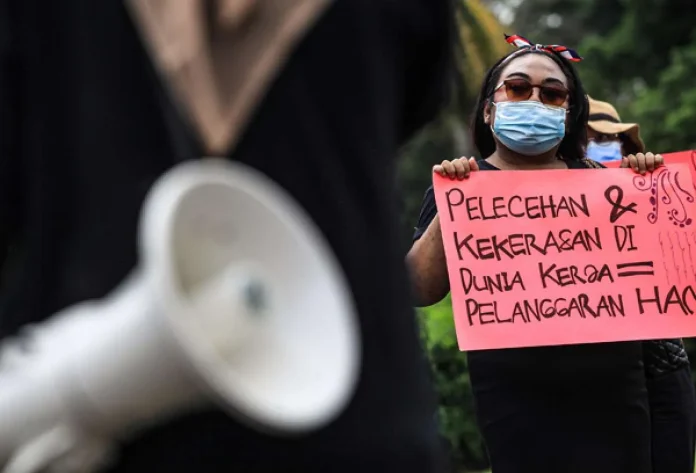 PELECEHAN &
KEKERASAN DI
DUNIA KERJA =
PELANGGARAN HAM